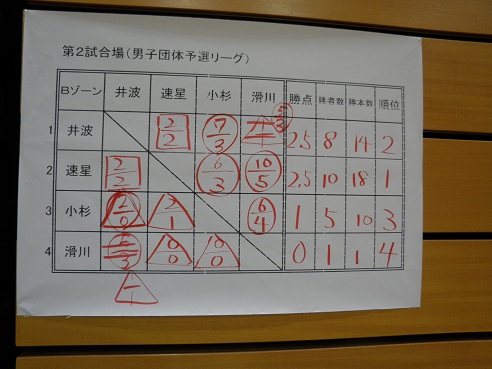 第2試合場(男子団体予選リーグ)
Bゾーン 井波 速星 小杉 滑川 勝点 勝者数 勝本数 順位
1 井波 2/2 7/3 5/3 2.5 8 14 2
2 速星 2/2 6/3 10/5 2.5 10 18 1
3 小杉 2/0 2/1 6/4 1 5 10 3
4 滑川 0/0 0/0 0 1 1 4
1/1